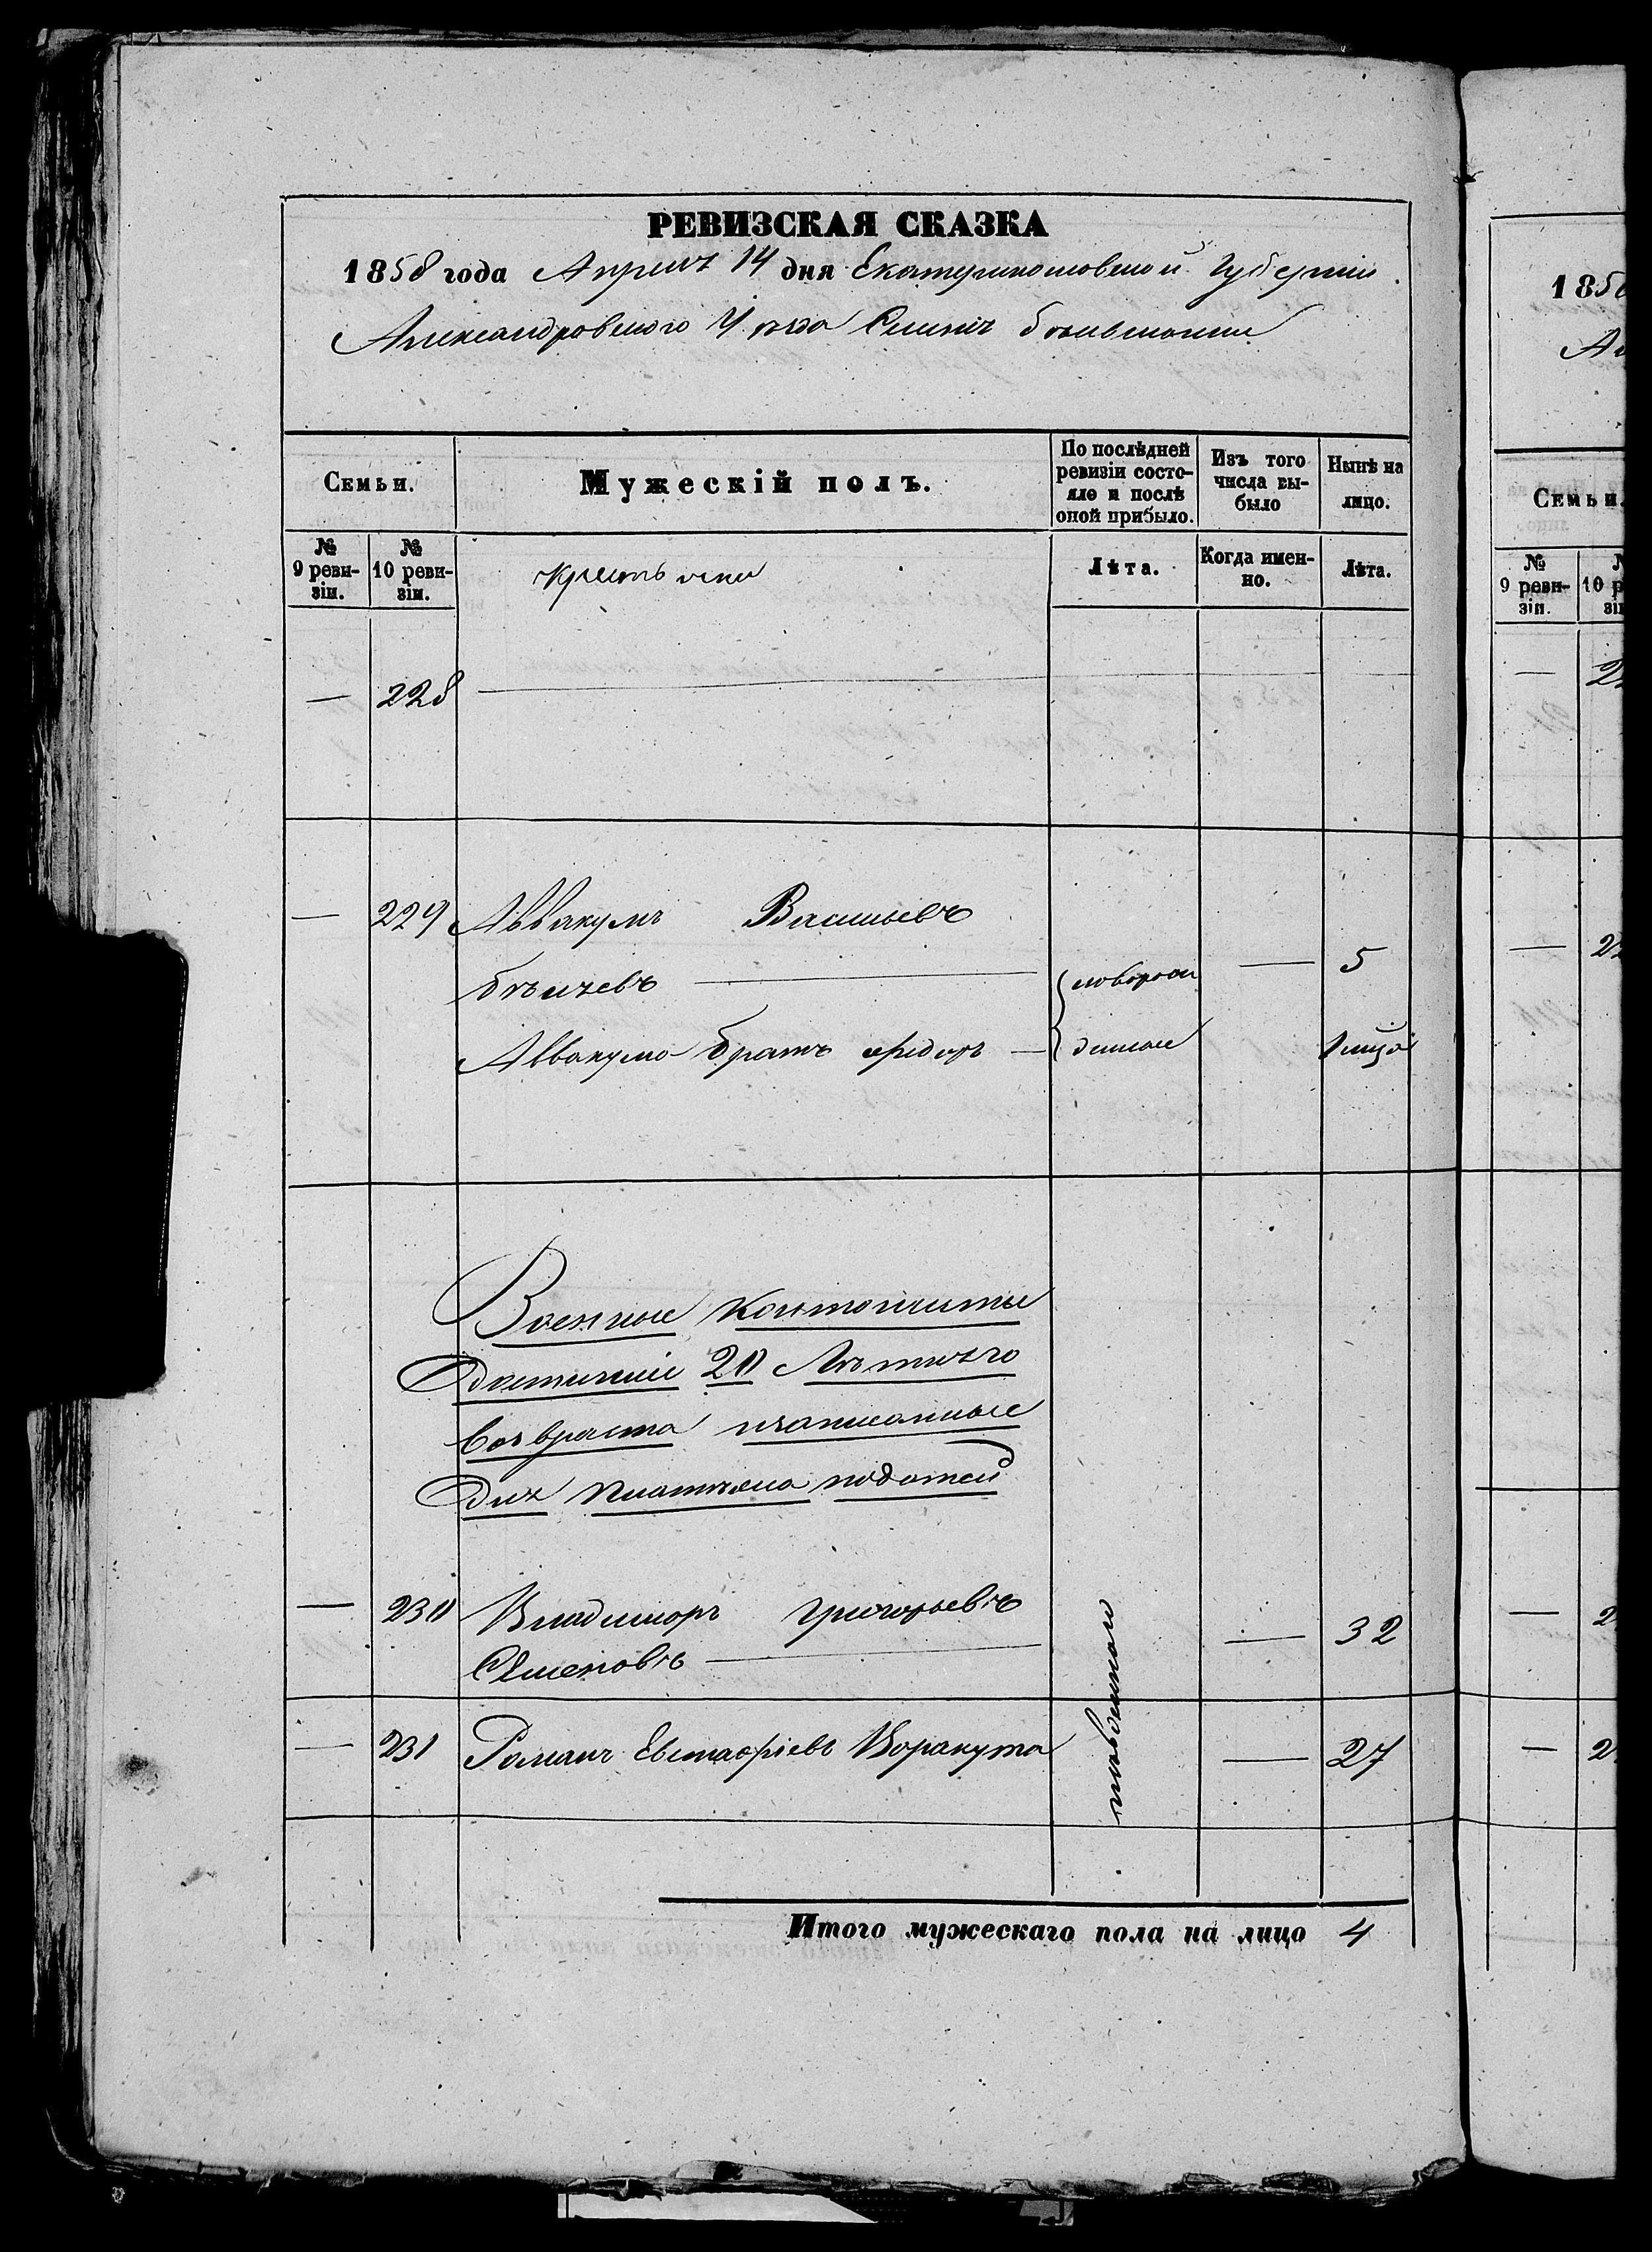 РЕВИЗСКАЯ СКАЗКА
1858 года Апреля 14 дня Екатеринославской Губернии
Александровского Уѣзда Селенія
Семьи.
Мужескій полъ.
По послѣдней ревизіи состояло и послѣ оной прибыло.
Изъ того числа выбыло
Нынѣ на лицо.
№ 9 ревизіи.
№ 10 ревизіи.
Крестьяне
Лѣта.
Когда именно.
Лѣта.
— 228 —
— 229 Аввакумъ Васильевъ
— новорож — 5
Аввакума братъ Федоръ — денные
Военные Кантонисты
Достигшіе 20 Лѣтняго
возраста
Для платежа податей
— 230 Владимиръ Григорьевъ
Семеновъ — — 32
— 231 Романъ Евстафіевъ Каракута — 27
Итого мужескаго пола на лицо 4
185
Семьи.
№ 9 ревизіи.